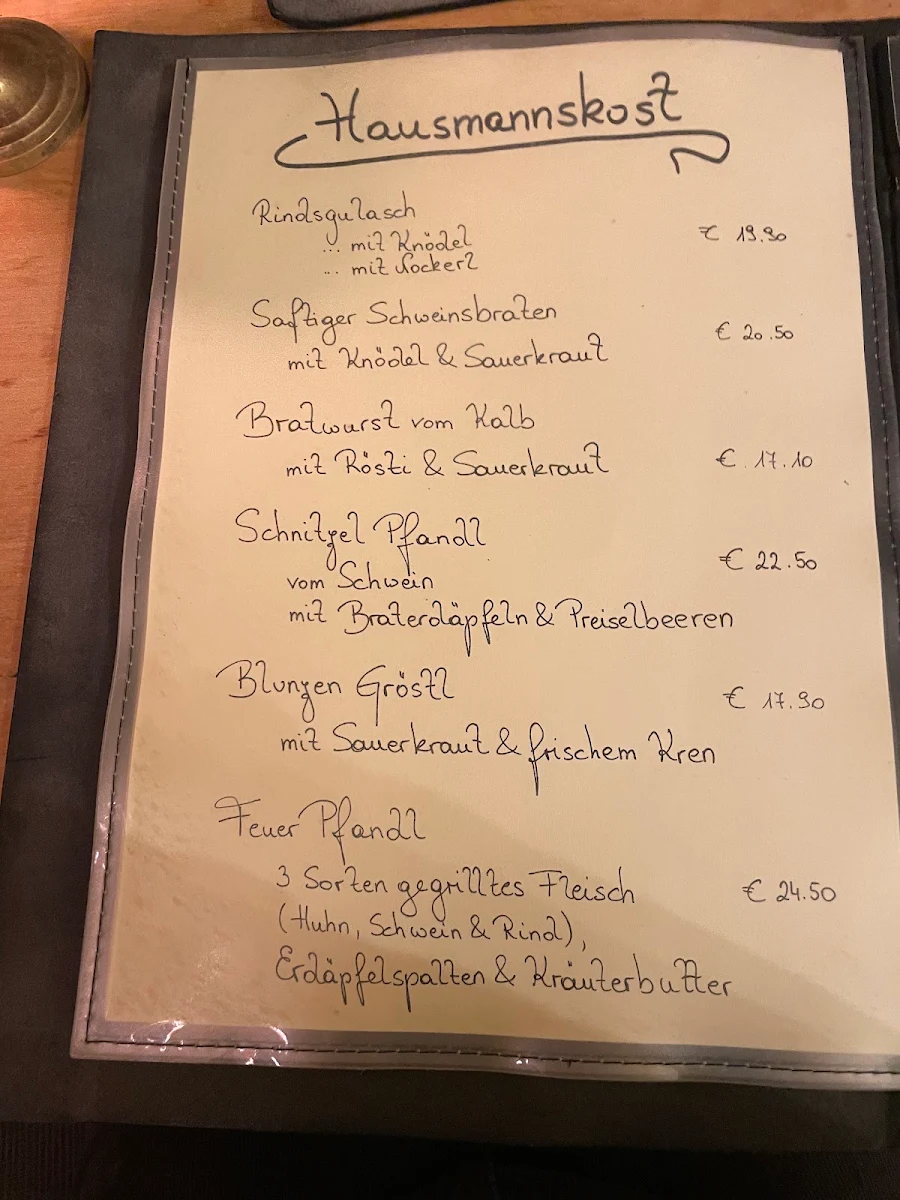 Hausmannskost
Rindsgulasch
... mit Knödel € 19.90
... mit Nockerl
Saftiger Schweinsbraten
mit Knödel & Sauerkraut € 20.50
Bratwurst vom Kalb
mit Rösti & Sauerkraut € 17.10
Schnitzel Pfandl
vom Schwein € 22.50
mit Braterdäpfeln & Preiselbeeren
Blunzen Gröstl € 17.90
mit Sauerkraut & frischem Kren
Feuer Pfandl
3 Sorten gegrilltes Fleisch € 24.50
(Huhn, Schwein & Rind),
Erdäpfelspalten & Kräuterbutter